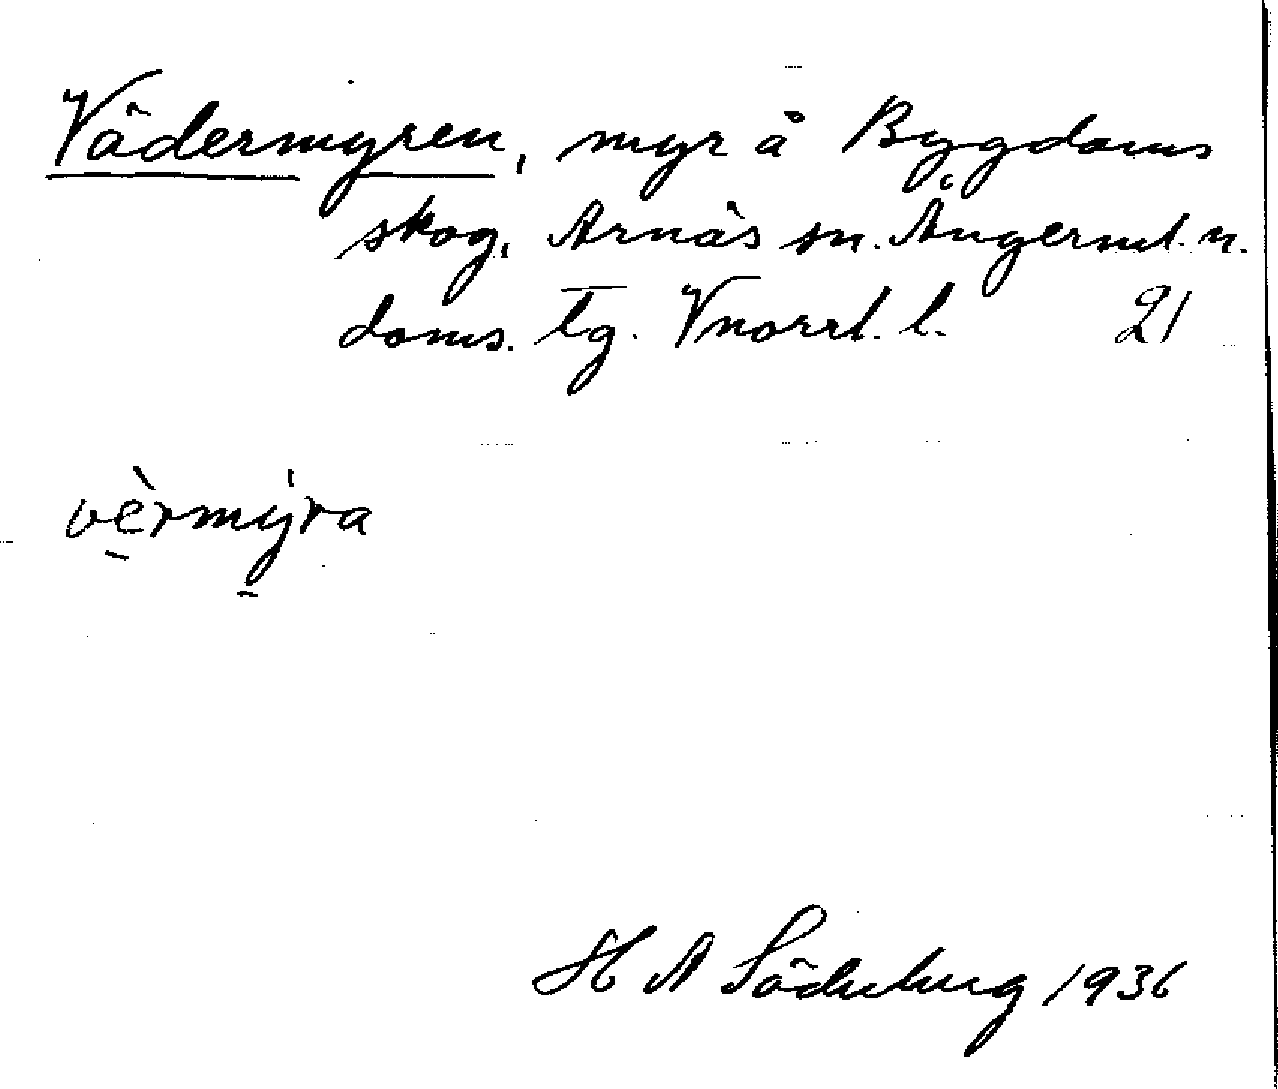 Vädermyren, myr å Bygdoms
skog, Arnäs sn. Ångerml. n.
doms. tg. Vnorrl. l. 21
vèrmýra
H A Söderberg 1936